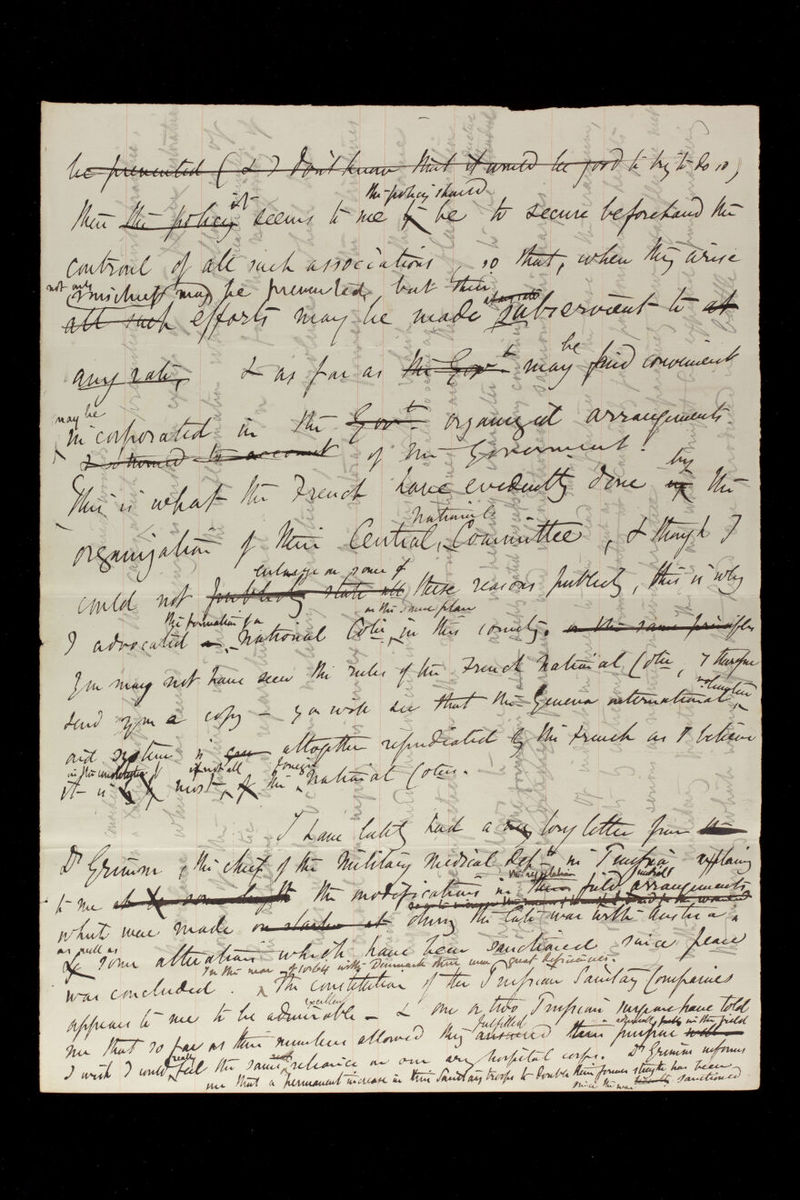 be prevented (& I don't know that it would be good to try to do so)
the policy should
then the policy it seems to me is be to secure beforehand the
controul of all such associations, so that, when they arise
not only mischief may be prevented, but their
all such efforts may be made subservient to at
any rate, & as far as the Govt may be find convenient
may be
incorporated in the Govt organized arrangements
& so turned to account of the Government.
This is what the French have evidently done in by the
National
organization of their Central Committee, & though I
enlarge on some of
could not publicly state all these reasons publicly, this is why
the formation of a on the same plan
I advocated a National Cotee in this country. on the same principles
You may not have seen the rules of the French National Cotee, I therefore
send you a copy - you will see that the Geneva international, volunteer
aid system is altogether repudiated by the French as I believe
if not all foreign
it is most of the National Cotees.
I have lately had a very long letter from the
Dr Grimm, the chief of the Military Medical Dept in Prussia explaining
to me at some length the modifications in their field arrangements
which were made during the late war with Austria,
as well as
& some alterations which have been sanctioned since peace
In the war with Denmark there were great deficiencies.
was concluded. The constitution of the Prussian Sanitary Companies
excellent
appears to me to be admirable - & one or two Prussian surgeons have told
fulfilled
me that so far as their numbers allowed they answered their purpose in the field
I wish I could feel the same reliance on our army hospital corps. Dr Grimm informs
me that a permanent increase in their Sanitary troops to double their former strength has been
since the war sanctioned